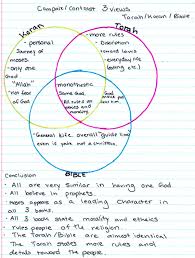 Compare/Contrast 3 views
Torah/Koran/Bible
Koran
- personal
Journey of
moses
- only one
God
"Allah"
- no face
of God
Torah
- more rules
- Discretion
toward laws
- everyday life
(eating etc.)
monotheistic
Same God
All rules
and morals
"General Life overall guide"
even is not a christian.
BIBLE
Conclusion
- All are very similar in having one God
- All believe in prophets.
- Moses appears as a leading character in
all 3 books.
- All 3 book state morality and ethics
- rules people of the religion.
- The Torah/Bible are almost identical
- The Torah states more rules and
details toward the people.